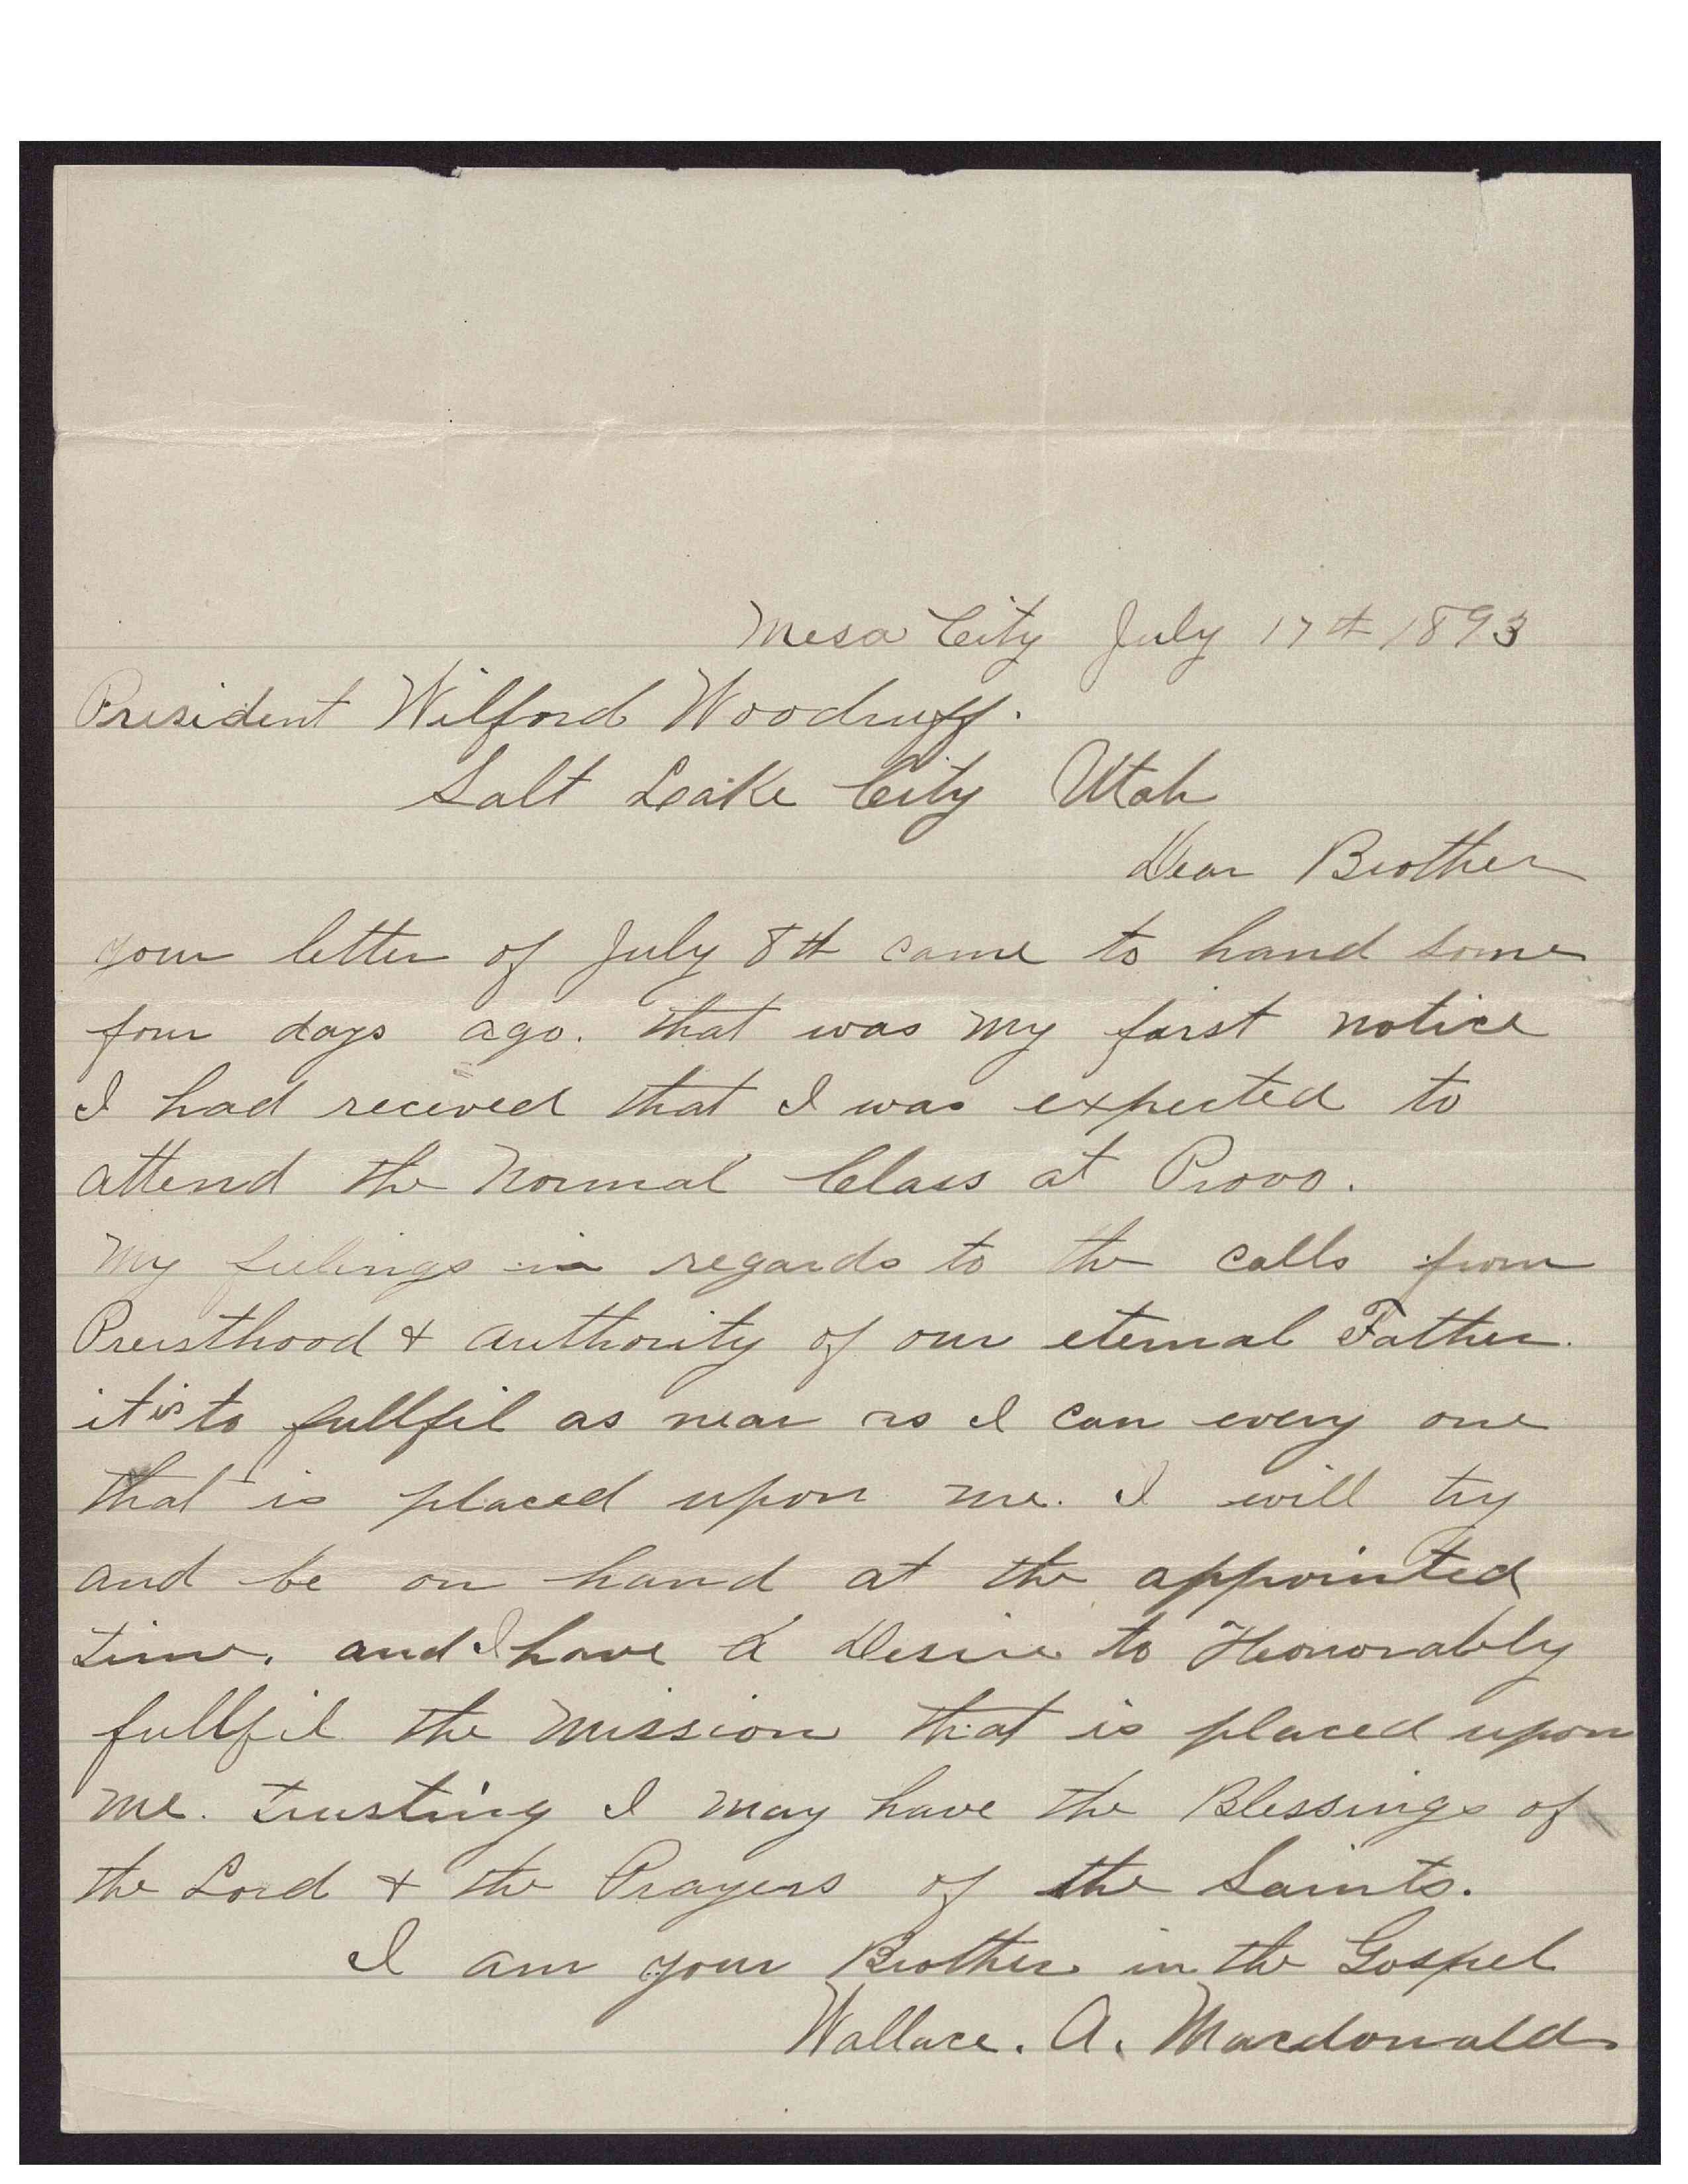 Mesa City July 17th 1893
President Wilford Woodruff.
Salt Leake City Utah
Dear Brother
your letter of July 8th came to hand some
four days ago. that was my farst notice
I had recieved that I was expected to
attend the Normal Class at Provo.
My feelings in regards to the calls from
Preisthood & authority of our eternal Father.
it is to fullfil as near as I can every one
that is placed upon me. I will try
and be on hand at the appointed
time. and I have a Desire to Honorably
fullfil the Mission that is placed upon
me. trusting I may have the Blessings of
the Lord & the Prayers of the Saints.
I am your Brother in the Gospel
Wallace. A. Macdonald